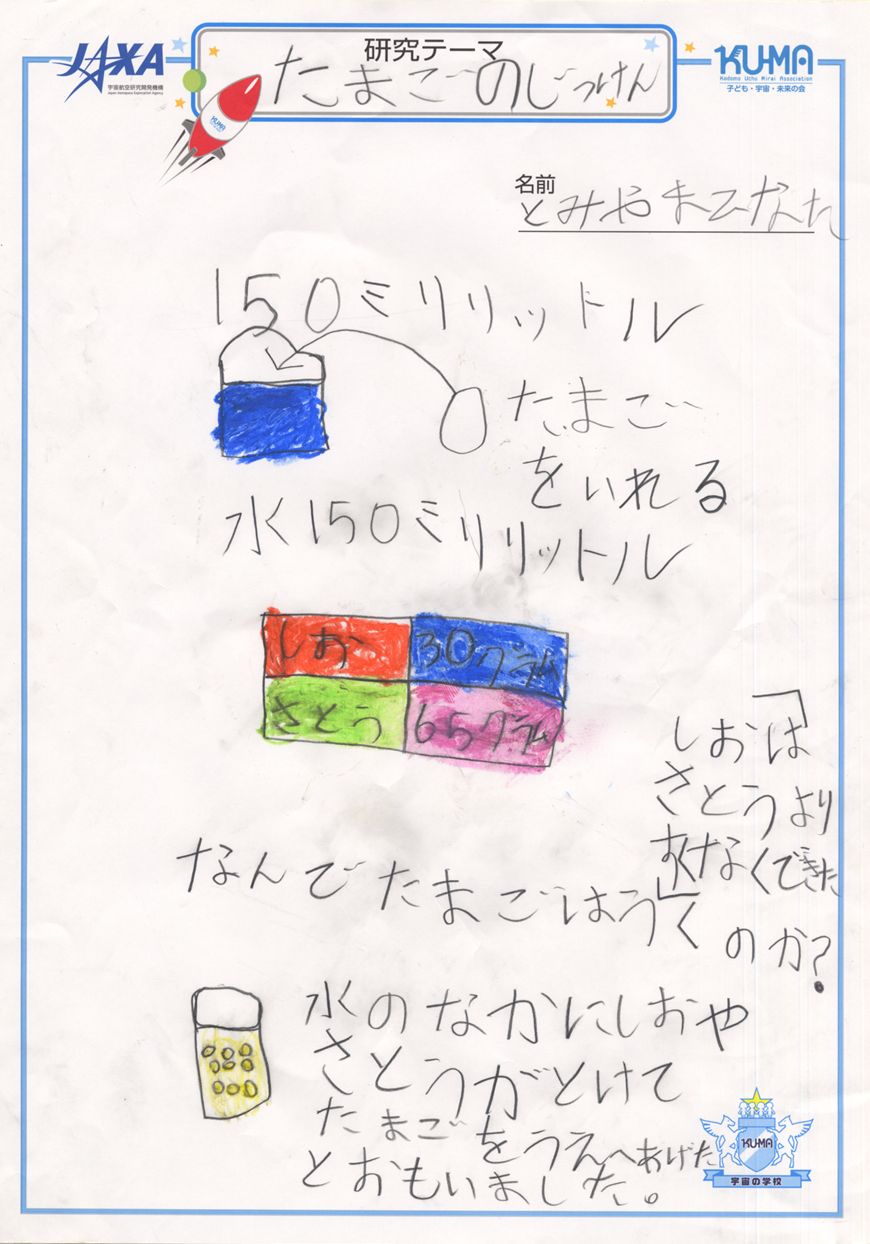 JAXA
宇宙航空研究開発機構
Japan Aerospace Exploration Agency
研究テーマ
たまごのじっけん
KU-MA
Kodomo Uchu Mirai Association
子ども・宇宙・未来の会
KU-MA
名前
とみやまひなた
150ミリリットル
たまご
をいれる
水150ミリリットル
しお 30グラム
さとう 65グラム
「しおは
さとうより
すくなくできた」
なんでたまごはうく
のか?
水のなかにしおや
さとうがとけて
たまごをうえへあげた
とおもいました。
KU-MA
宇宙の学校